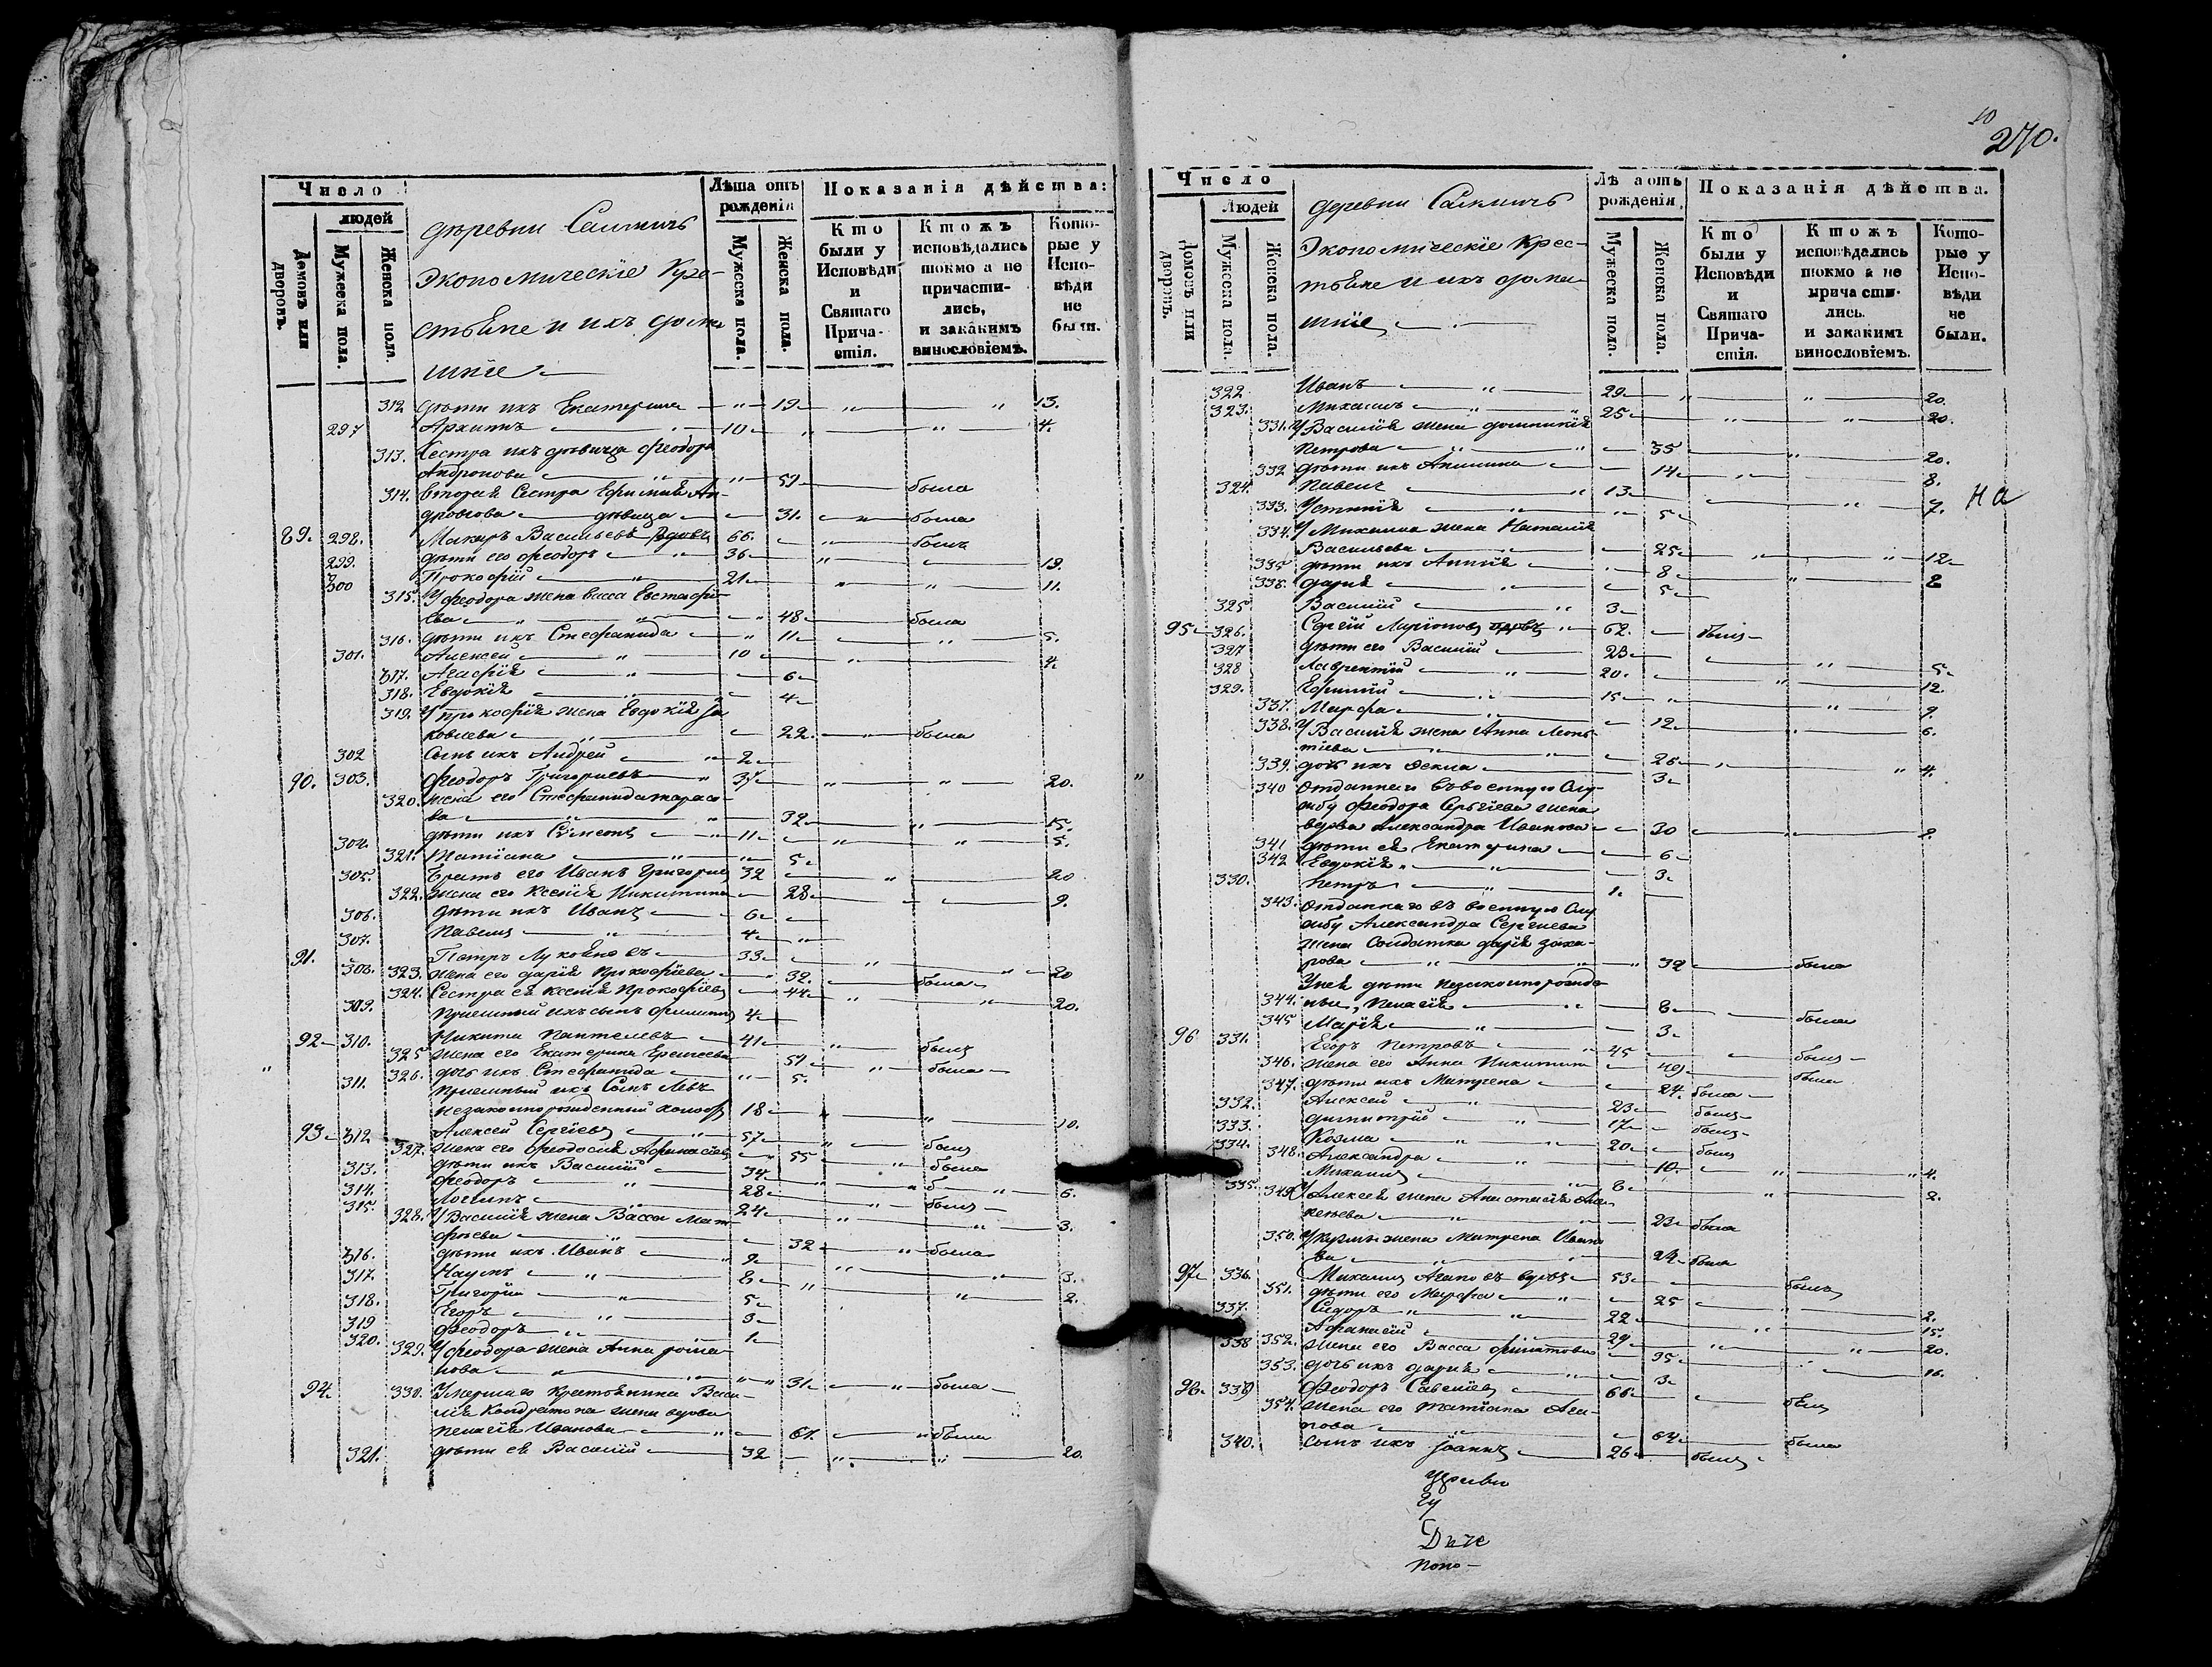 Число
людей
Домовъ или дворовъ.
Мужеска пола.
Женска пола.
деревни Салкичъ
Экономическіе Кре-
стьяне и ихъ дома-
шніе
Лѣта отъ рожденія
Мужеска пола.
Женска пола.
Показанія дѣйства:
Кто были у Исповѣди и Святаго Причастія.
Ктожъ исповѣдались токмо а не причастились, и закакимъ винословіемъ.
Которые у Исповѣди не были.
312 дѣти ихъ Екатерина 19 13.
297 Архипъ 10 4.
313. Сестра ихъ дѣвица Феодора
Андронова 59 была
314. вторая Сестра Ефимия Ан-
дронова дѣвица 31. была
89. 298. Макаръ Васильевъ вдовъ 66. былъ
299. дѣти его Феодоръ 36 19.
300 Прокофій 21 11.
315. У Феодора жена васса Евстафи-
ева 48 была
316. дѣти ихъ Стефанида 11 5.
301. Алексей 10 4.
317. Агафія 6
318. Евдокія 4
319. У прокофія жена Евдокія Я-
ковлева 22. была
302 Сынъ ихъ Андрей 2
90. 303. Феодоръ Григорьевъ 37 20.
320. жена его Стефанида тарасо-
ва 32 15.
304. дѣти ихъ Сѵмеонъ 11 5.
321. Татіана 5
305. Братъ его Иванъ Григорьев 32 20
322. жена его Ксенія Никитина 28 9.
306. дѣти ихъ Иванъ 6
307. Павелъ 4
91. 308. Петръ Лукояновъ 33 20
323. жена его дарія Прокофіева 32. была
324. Сестра ея Ксенія Прокофіев 44 20.
309. Приемный ихъ сынъ Филиппъ 4
92 310. Никита Пантелѣвъ 41 былъ
325 жена его Екатерина Еремеева 59 была
326. дочь ихъ Стефанида 5.
311. Приемный ихъ Сынъ Левъ
незаконнорожденный 18 10.
93 312 Алексей Сергіевъ 57 былъ
327. жена его Феодосия Афанасіев 55 была
313. дѣти ихъ Василий 34 6.
314. Феодоръ 28 былъ
315. Логинъ 24 3.
328. У Василия жена Васса Мат-
фѣева 32 была
316. дѣти ихъ Иванъ 9 3.
317. Наумъ 8 2.
318. Григорий 5
319 Егоръ 3
320. Феодоръ 1
329. У Феодора жена Анна рома-
нова 31 была
94. 330. Умершаго крестьянина Васи-
лія Кондратова жена вдова
Пелагія Иванова 61. была
321. дѣти ея Василий 32 20.
10
270.
Число
Людей
Домовъ или дворовъ.
Мужеска пола.
Женска пола.
деревни Салкичъ
Экономическіе Крес-
тьяне и ихъ дома-
шніе
Лѣта отъ рожденія
Мужеска пола.
Женска пола.
Показанія дѣйства.
Кто были у Исповѣди и Святаго Причастія.
Ктожъ исповѣдались токмо а не причастились. и закакимъ винословіемъ.
Которые у Исповѣди не были.
322 Иванъ 29 20.
323. Михаилъ 25 20.
331. У Василия жена
Петрова 35 20.
332 дѣти ихъ Акилина 14 8.
324. Павелъ 13 7.
На
333. Устинія 5
334. У Михаила жена Наталия
Васильева 25 12
335 дѣти ихъ Анния 8 2
336. дарія 5
325 Василий 3
95 326. Сергій Ларіоновъ вдовъ 62. былъ
327 дѣти его Василий 23 5
328 Лаврентій 20. 12.
329. Ефимий 15 9.
337. Марфа 12 6.
338. У Василія жена Анна Леон-
тіева 26 4.
339. дочь ихъ Фекла 3
340 Отданнаго въ военную Слу-
жбу Феодора Сергіева жена
вдова Александра Иванова 30 2.
341 дѣти ея Екатерина 6
342 Евдокія 3
330. Петръ 1
343. Отданнаго въ военную Слу
жбу Александра Сергиева
жена Солдатка дарія заха-
рова 32 была
У нея дѣти незаконнорожде-
344. ные, Пелагія 8 была
345 Марія 3
96 331. Егоръ Петровъ 45 былъ
346. жена его Анна Никитин 49 была
347. дѣти ихъ Матрена 24. была
332. Алексей 23 былъ
333. димитрий 17 былъ
334. Козма 20 былъ
348. Александра 10 4.
335. Михаилъ 8 2.
349. У Алексея жена Анастасія
23 была
350. У Кузмы жена Матрена Ивано
ва 24 была
97 336. Михаилъ Агаповъ вдовъ 53 былъ
351. дѣти его Марфа 25 2.
337. Сидоръ 22 15.
338 Афанасій 29 20.
352. жена его Васса филатова 35 16.
353. дочь ихъ дарія 3
98. 339 Феодоръ Савеліевъ 66 былъ
354. жена его татіана Ага-
пова 64 была
340. сынъ ихъ Іоаннъ 26 былъ